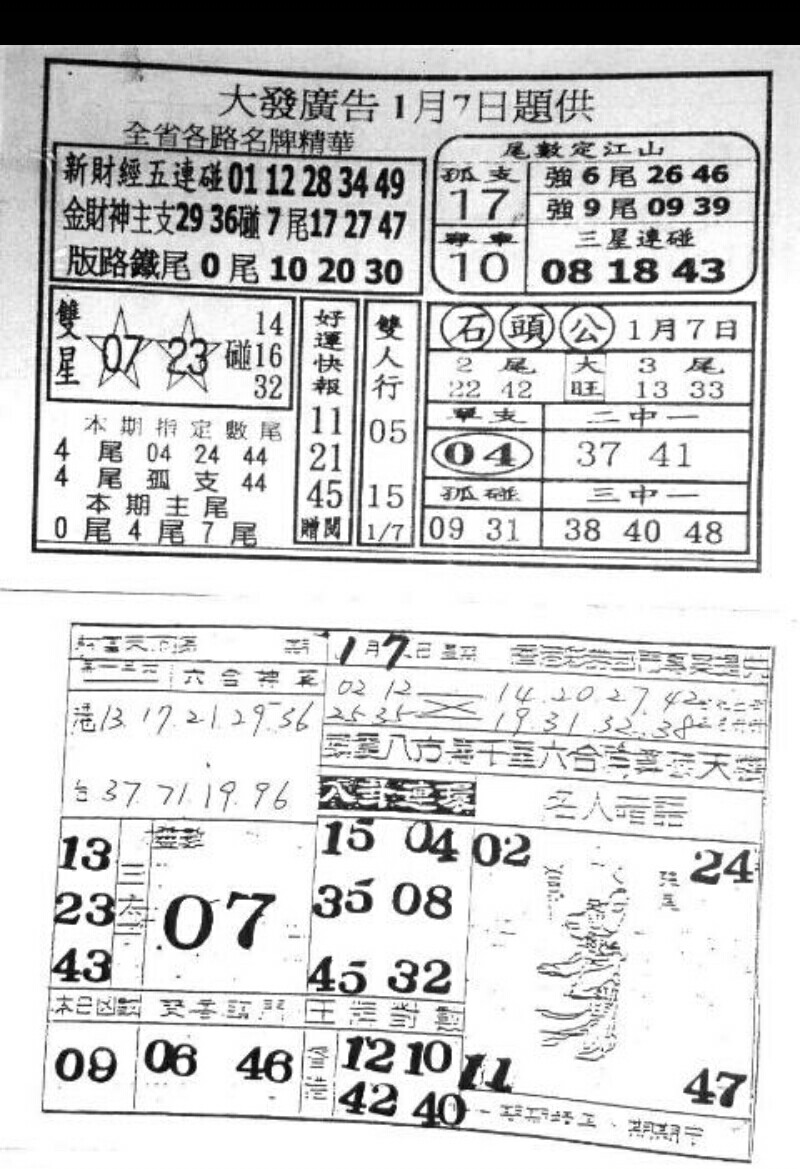 大發廣告1月7日題供
全省各路名牌精華
新財經五連碰 01 12 28 34 49
金財神主支 29 36碰 7尾 17 27 47
版路鐵尾 0 尾 10 20 30
尾數定江山
孤支 強 6 尾 26 46
17 強 9 尾 09 39
專車 三星連碰
10 08 18 43
雙星 07 23 碰 14 16 32
本期指定數尾
4 尾 04 24 44
4 尾 孤 支 44
本期主尾
0 尾 4 尾 7 尾
好運快報
11
21
45
贈閱
雙人行
05
15
1/7
石頭公 1月7日
2 尾 大旺 3 尾
22 42 13 33
單支 二中一
04 37 41
孤碰 三中一
09 31 38 40 48
1月7日
六合神算
02 12 14.20.27.42
25.35 19.31.32.38
港13.17.21.29.36
台37.71.19.96
八卦連環
名人暗語
13
23
43
07
15 04
35 08
45 32
02 24
11 47
本日凶數
09
06 46
12 10
42 40